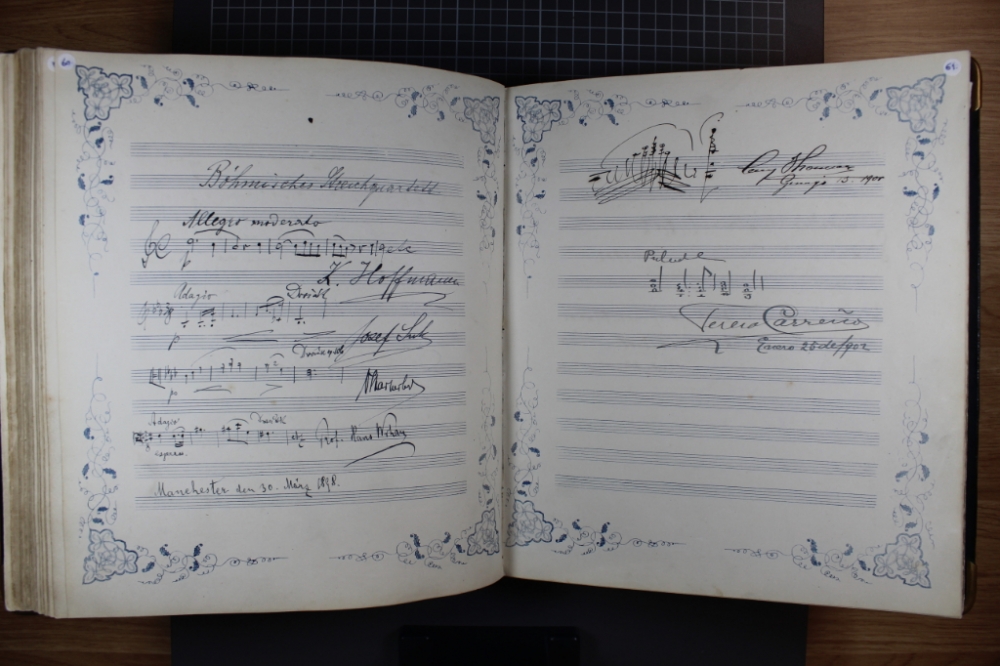 60
Böhmisches Streichquartett
Allegro moderato
p
etc
K. Hoffmann
Adagio
Dvořák
p
Josef Suk
p
Adagio
Dvořák
espress.
etc
Prof. Hans Wihan
Manchester den 30. März 1898.
61
1900
Prelude
Teresa Carreño
Enero 25 de 1902